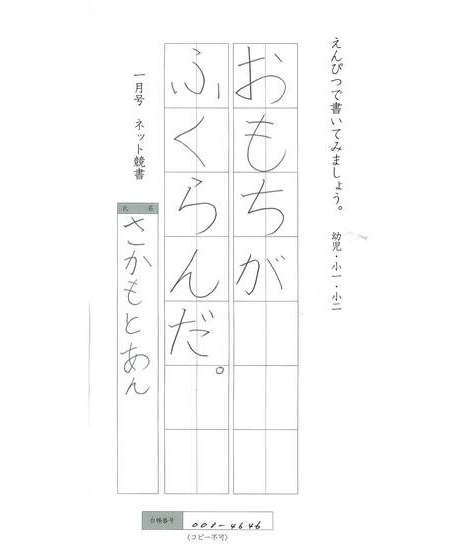 えんぴつで書いてみましょう。 幼児・小一・小二
おもちが
ふくらんだ。
一月号 ネット競書
氏名
さかもとあん
台帳番号 008-4646
(コピー不可)